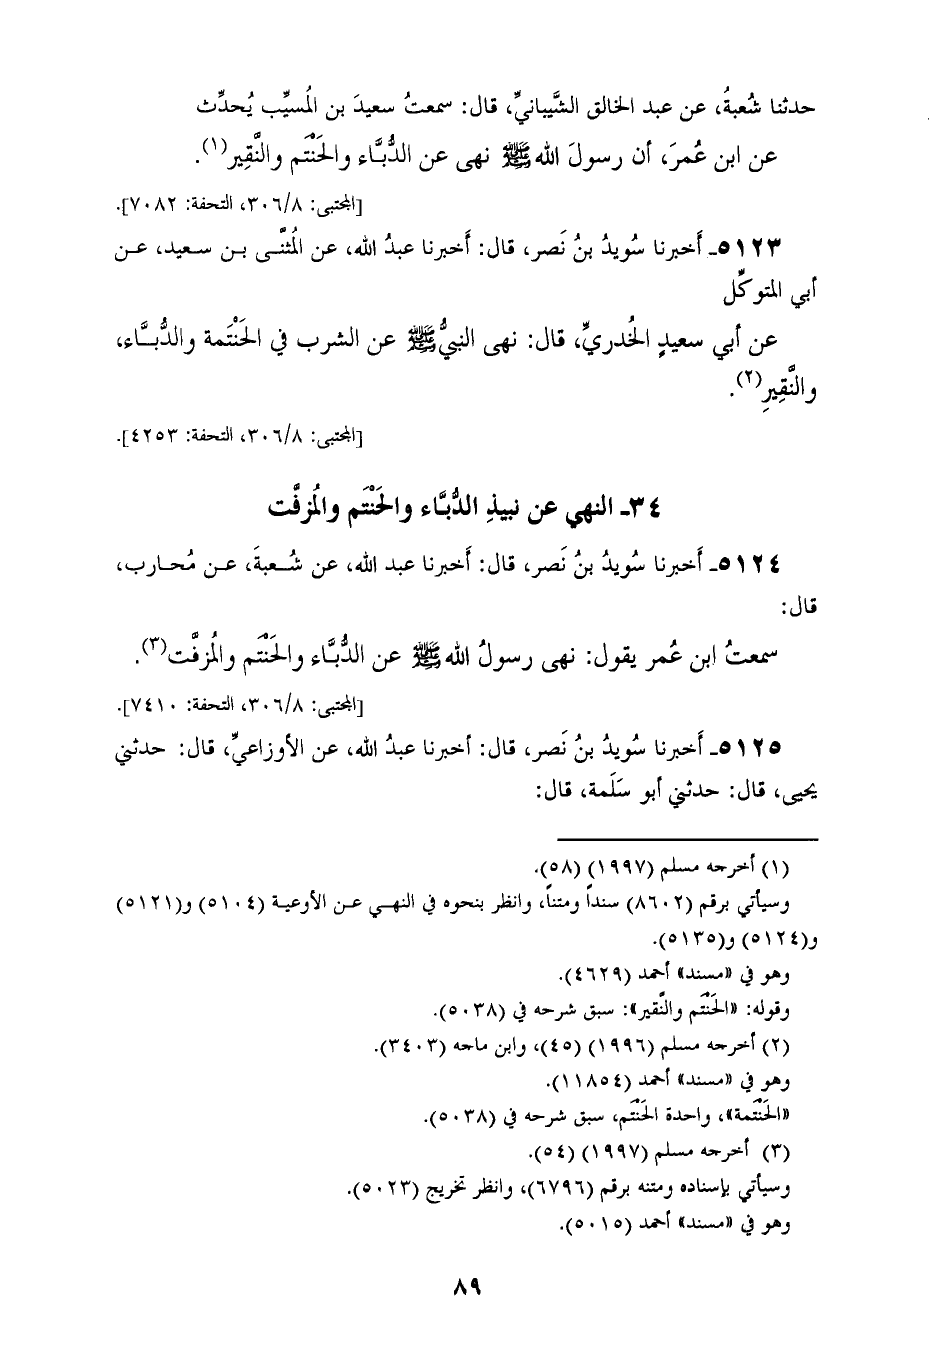 حدثنا شُعبةُ، عن عبد الخالق الشَّيبانيِّ، قال: سمعتُ سعيدَ بن المُسيِّب يُحدِّث
عن ابن عُمرَ، أن رسولَ الله ﷺ نهى عن الدُّبَّاء والحَنْتَم والنَّقِير(١).
[المجتبى: ٣٠٦/٨، التحفة: ٧٠٨٢].
٥١٢٣ـ أَخبرنا سُويدُ بنُ نَصر، قال: أَخبرنا عبدُ الله، عن المُثنَّى بن سعيد، عن
أبي المتوكِّل
عن أبي سعيدٍ الخُدريِّ، قال: نهى النبيُّ ﷺ عن الشرب في الحَنْتَمة والدُّبَّاء،
والنَّقِيرِ(٢).
[المجتبى: ٣٠٦/٨، التحفة: ٤٢٥٣].
٣٤ـ النهي عن نبيذِ الدُّبَّاء والحَنْتَم والمُزفَّت
٥١٢٤ـ أَخبرنا سُويدُ بنُ نَصر، قال: أَخبرنا عبد الله، عن شُعبةَ، عن مُحارب،
قال:
سمعتُ ابن عُمر يقول: نهى رسولُ الله ﷺ عن الدُّبَّاء والحَنْتَم والمُزفَّت(٣).
[المجتبى: ٣٠٦/٨، التحفة: ٧٤١٠].
٥١٢٥ـ أَخبرنا سُويدُ بنُ نَصر، قال: أخبرنا عبدُ الله، عن الأوزاعيِّ، قال: حدثني
يحيى، قال: حدثني أبو سَلَمة، قال:
(١) أخرجه مسلم (١٩٩٧) (٥٨).
وسيأتي برقم (٨٦٠٢) سنداً ومتناً، وانظر بنحوه في النهي عن الأوعية (٥١٠٤) و(٥١٢١)
و(٥١٢٤) و(٥١٣٥).
وهو في «مسند» أحمد (٤٦٢٩).
وقوله: «الحَنْتَم والنَّقير»: سبق شرحه في (٥٠٣٨).
(٢) أخرجه مسلم (١٩٩٦) (٤٥)، وابن ماجه (٣٤٠٣).
وهو في «مسند» أحمد (١١٨٥٤).
«الحَنْتَمة»، واحدة الحَنْتَم، سبق شرحه في (٥٠٣٨).
(٣) أخرجه مسلم (١٩٩٧) (٥٤).
وسيأتي بإسناده ومتنه برقم (٦٧٩٦)، وانظر تخريج (٥٠٢٣).
وهو في «مسند» أحمد (٥٠١٥).
٨٩